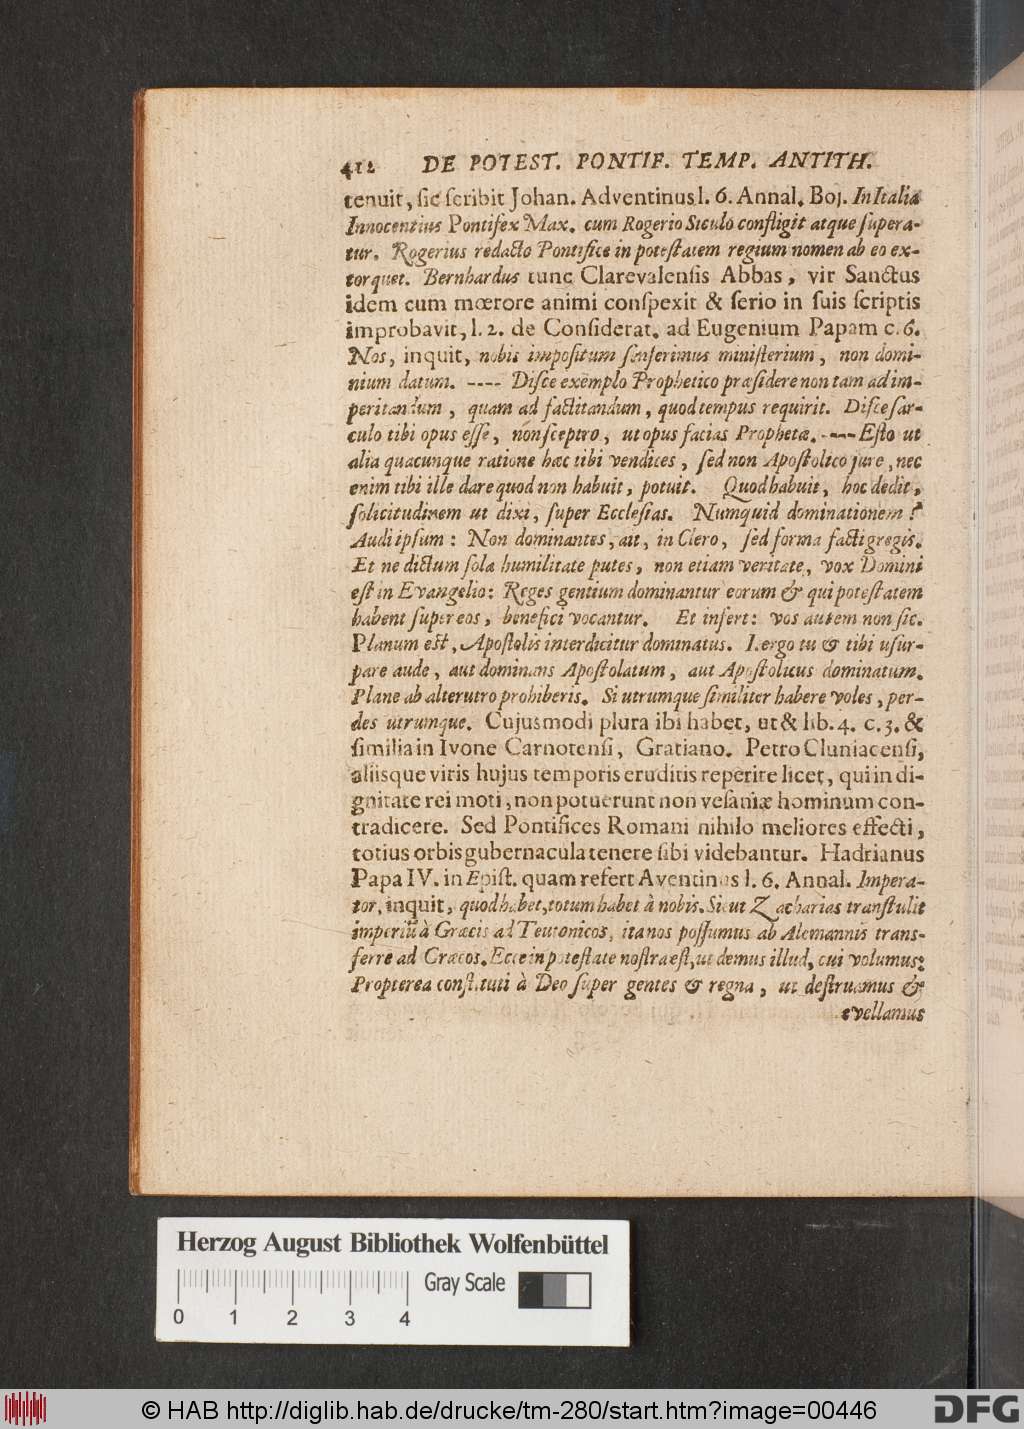 412 DE POTEST. PONTIF. TEMP. ANTITH.
tenuit, ſic ſcribit Johan. Adventinus l. 6. Annal. Boj. In Italia
Innocentius Pontifex Max. cum Rogerio Siculo confligit atque ſupera-
tur. Rogerius redacto Pontifice in poteſtatem regium nomen ab eo ex-
torquet. Bernhardus tunc Clarevalenſis Abbas, vir Sanctus
idem cum mœrore animi conſpexit & ſerio in ſuis ſcriptis
improbavit, l. 2. de Conſiderat. ad Eugenium Papam c. 6.
Nos, inquit, nobis impoſitum ſenſerimus miniſterium, non domi-
nium datum. ---- Diſce exemplo Prophetico præſidere non tam ad im-
peritandum, quam ad factitandum, quod tempus requirit. Diſce ſar-
culo tibi opus eſſe, non ſceptro, ut opus facias Prophetæ. ---- Eſto ut
alia quacunque ratione hæc tibi vendices, ſed non Apoſtolico jure, nec
enim tibi ille dare quod non habuit, potuit. Quod habuit, hoc dedit,
ſolicitudinem ut dixi, ſuper Eccleſias. Numquid dominationem?
Audi ipſum: Non dominantes, ait, in Clero, ſed forma facti gregis.
Et ne dictum ſola humilitate putes, non etiam veritate, vox Domini
eſt in Evangelio: Reges gentium dominantur eorum & qui poteſtatem
habent ſuper eos, benefici vocantur. Et infert: vos autem non ſic.
Planum eſt, Apoſtolis interdicitur dominatus. I ergo tu & tibi uſur-
pare aude, aut dominans Apoſtolatum, aut Apoſtolicus dominatum.
Plane ab alterutro prohiberis. Si utrumque ſimiliter habere voles, per-
des utrumque. Cujusmodi plura ibi habet, ut & lib. 4. c. 3. &
ſimilia in Ivone Carnotenſi, Gratiano. Petro Cluniacenſi,
aliisque viris hujus temporis eruditis reperire licet, qui in di-
gnitate rei moti, non potuerunt non veſaniæ hominum con-
tradicere. Sed Pontifices Romani nihilo meliores effecti,
totius orbis gubernacula tenere ſibi videbantur. Hadrianus
Papa IV. in Epiſt. quam refert Aventinus l. 6. Annal. Impera-
tor, inquit, quod habet, totum habet à nobis. Sicut Zacharias tranſtulit
imperiũ à Græcis ad Teutonicos, ita nos poſſumus ab Alemannis trans-
ferre ad Græcos. Ecce in poteſtate noſtra eſt, ut demus illud, cui volumus:
Propterea conſtituti à Deo ſuper gentes & regna, ut deſtruamus &
evellamus
Herzog August Bibliothek Wolfenbüttel
Gray Scale
0 1 2 3 4
© HAB http://diglib.hab.de/drucke/tm-280/start.htm?image=00446
DFG